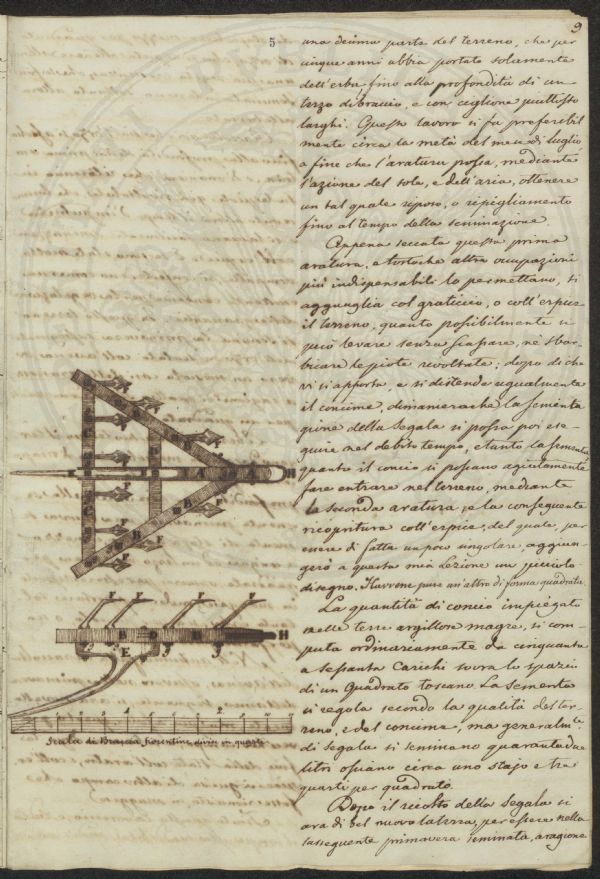 9
5
una decima parte del terreno, che per
cinque anni abbia portato solamente
dell'erba, fino alla profondità di un
terzo di braccio, e con ciglione piuttosto
larghi. Questo lavoro si fa preferibil
mente circa la metà del mese di luglio,
a fine che l'aratura possa, mediante
l'azione del sole, e dell'aria, ottenere
un tal quale riposo, o ripigliamento
fino al tempo della seminazione.
Appena seccata questa prima
aratura, e tostoche altre occupazioni
più indispensabili lo permettano, si
agguaglia col graticcio, o coll'erpice
il terreno, quanto possibilmente si
può levare senza né
le piote rivoltate; dopo di che
vi si apporta, e si distende ugualmente
il concime, dimanierache la sementa
gione della Segala si possa poi ese-
guire nel debito tempo, e tanto la sementa
quanto il concio si possano agiatamente
fare entrare nel terreno, mediante
la seconda aratura, e la conseguente
ricopritura coll'erpice, del quale, per
essere di fatta un poco singolare, aggiun-
gerò a questa mia Lezione un piccolo
disegno. Havvene pure un'altro di forma quadrata.
La quantità di concio impiegato
nelle terre argillose magre, si com-
puta ordinariamente da cinquanta
a sessanta Carichi sovra lo spazio
di un Quadrato toscano. La Sementa
si regola secondo la qualità del ter-
reno, e del concime, ma generalmte.
di segala si seminano quarantadue
litri ossiano circa uno stajo e tre
quarti per quadrato.
Dopo il récolto della Segala si
ara di bel nuovo la terra, per essere nella
susseguente primavera seminata, a ragione
H
A
B
C
F
F F F F
B D B H
E
1 2
Scala di Braccia fiorentine divise in quarti